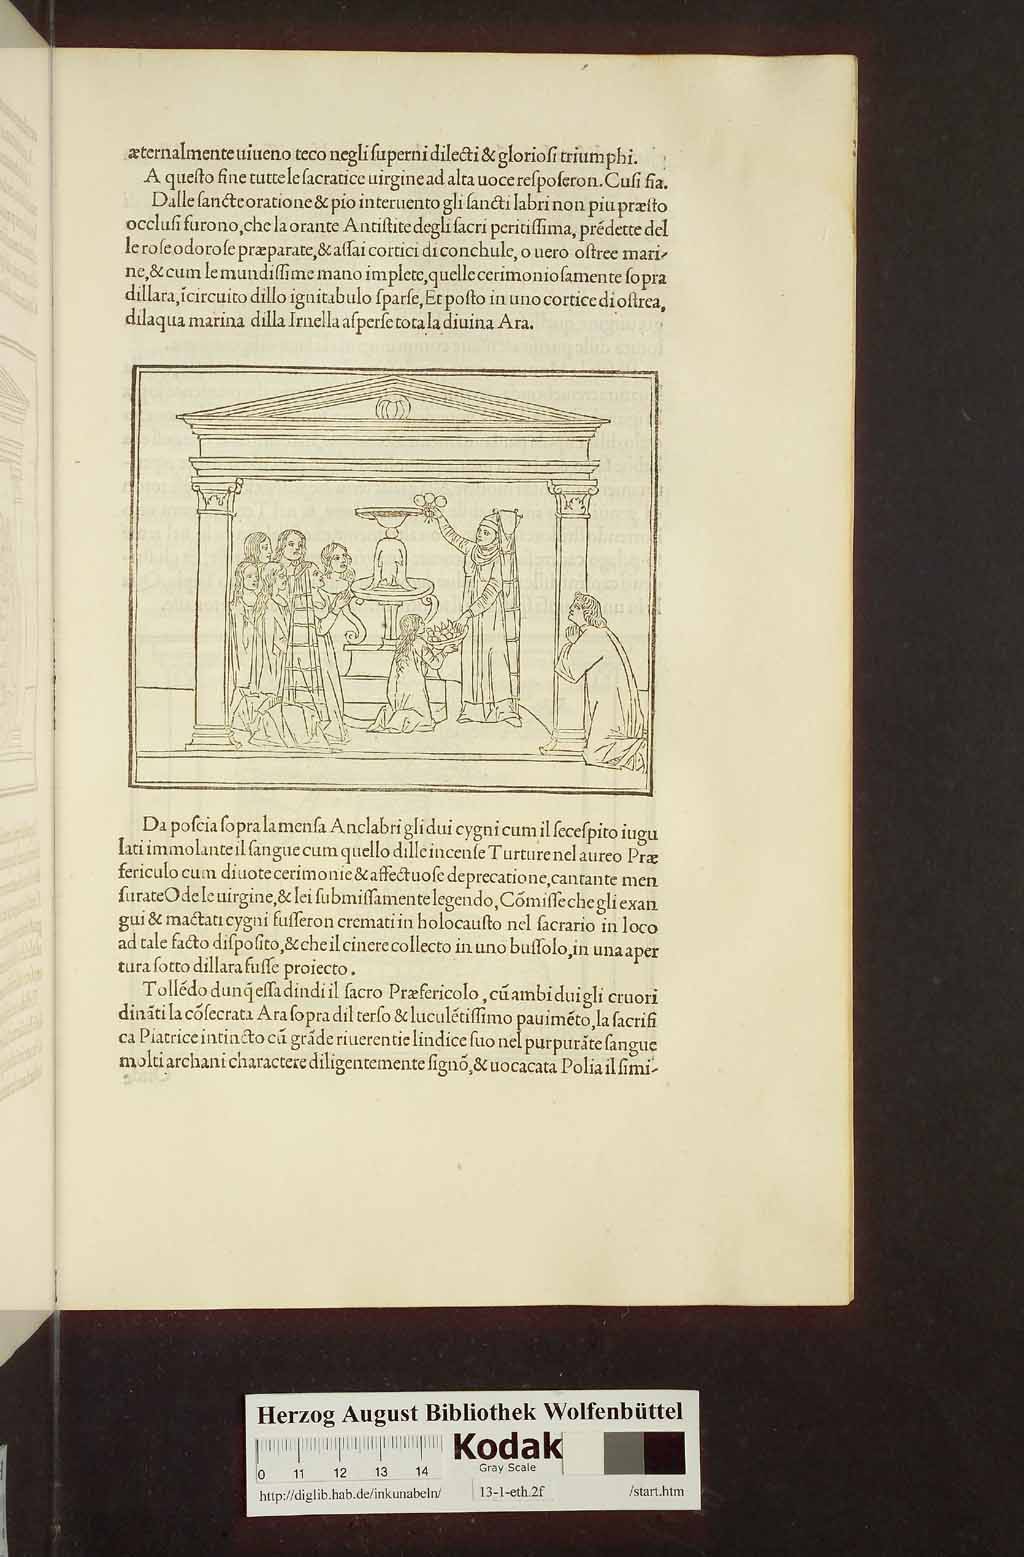 æternalmente uiueno teco negli ſuperni dilecti & glorioſi triumphi.
A queſto fine tutte le ſacratice uirgine ad alta uoce reſpoſeron. Cuſi fia.
Dalle ſancte oratione & pio interuento gli ſancti labri non piu præſto
occluſi furono, che la orante Antiſtite degli ſacri peritiſſima, prédette del
le roſe odoroſe præparate, & aſſai cortici di conchule, o uero oſtree mari-
ne, & cum le mundiſſime mano implete, quelle cerimonioſamente ſopra
dillara, ĩcircuito dillo ignitabulo ſparſe, Et poſto in uno cortice di oſtrea,
dilaqua marina dilla Irnella aſperſe tota la diuina Ara.
Da poſcia ſopra la menſa Anclabri gli dui cygni cum il ſeceſpito iugu
lati immolante il ſangue cum quello dille incenſe Turture nel aureo Præ
fericulo cum diuote cerimonie & affectuoſe deprecatione, cantante men
ſurate Ode le uirgine, & lei ſubmiſſamente legendo, Cõmiſſe che gli exan
gui & mactati cygni fuſſeron cremati in holocauſto nel ſacrario in loco
ad tale facto diſpoſito, & che il cinere collecto in uno buſſolo, in una aper
tura ſotto dillara fuſſe proiecto.
Tollédo dunq̃ eſſa dindi il ſacro Præfericolo, cũ ambi dui gli cruori
dinãti la cõſecrata Ara ſopra dil terſo & luculẽtiſſimo pauimẽto, la ſacrifi
ca Piatrice intincto cũ grãde riuerentie lindice ſuo nel purpurãte ſangue
molti archani charactere diligentemente ſignõ, & uocacata Polia il ſimi-
Herzog August Bibliothek Wolfenbüttel
Kodak
Gray Scale
0 11 12 13 14
http://diglib.hab.de/inkunabeln/ 13-1-eth.2f /start.htm